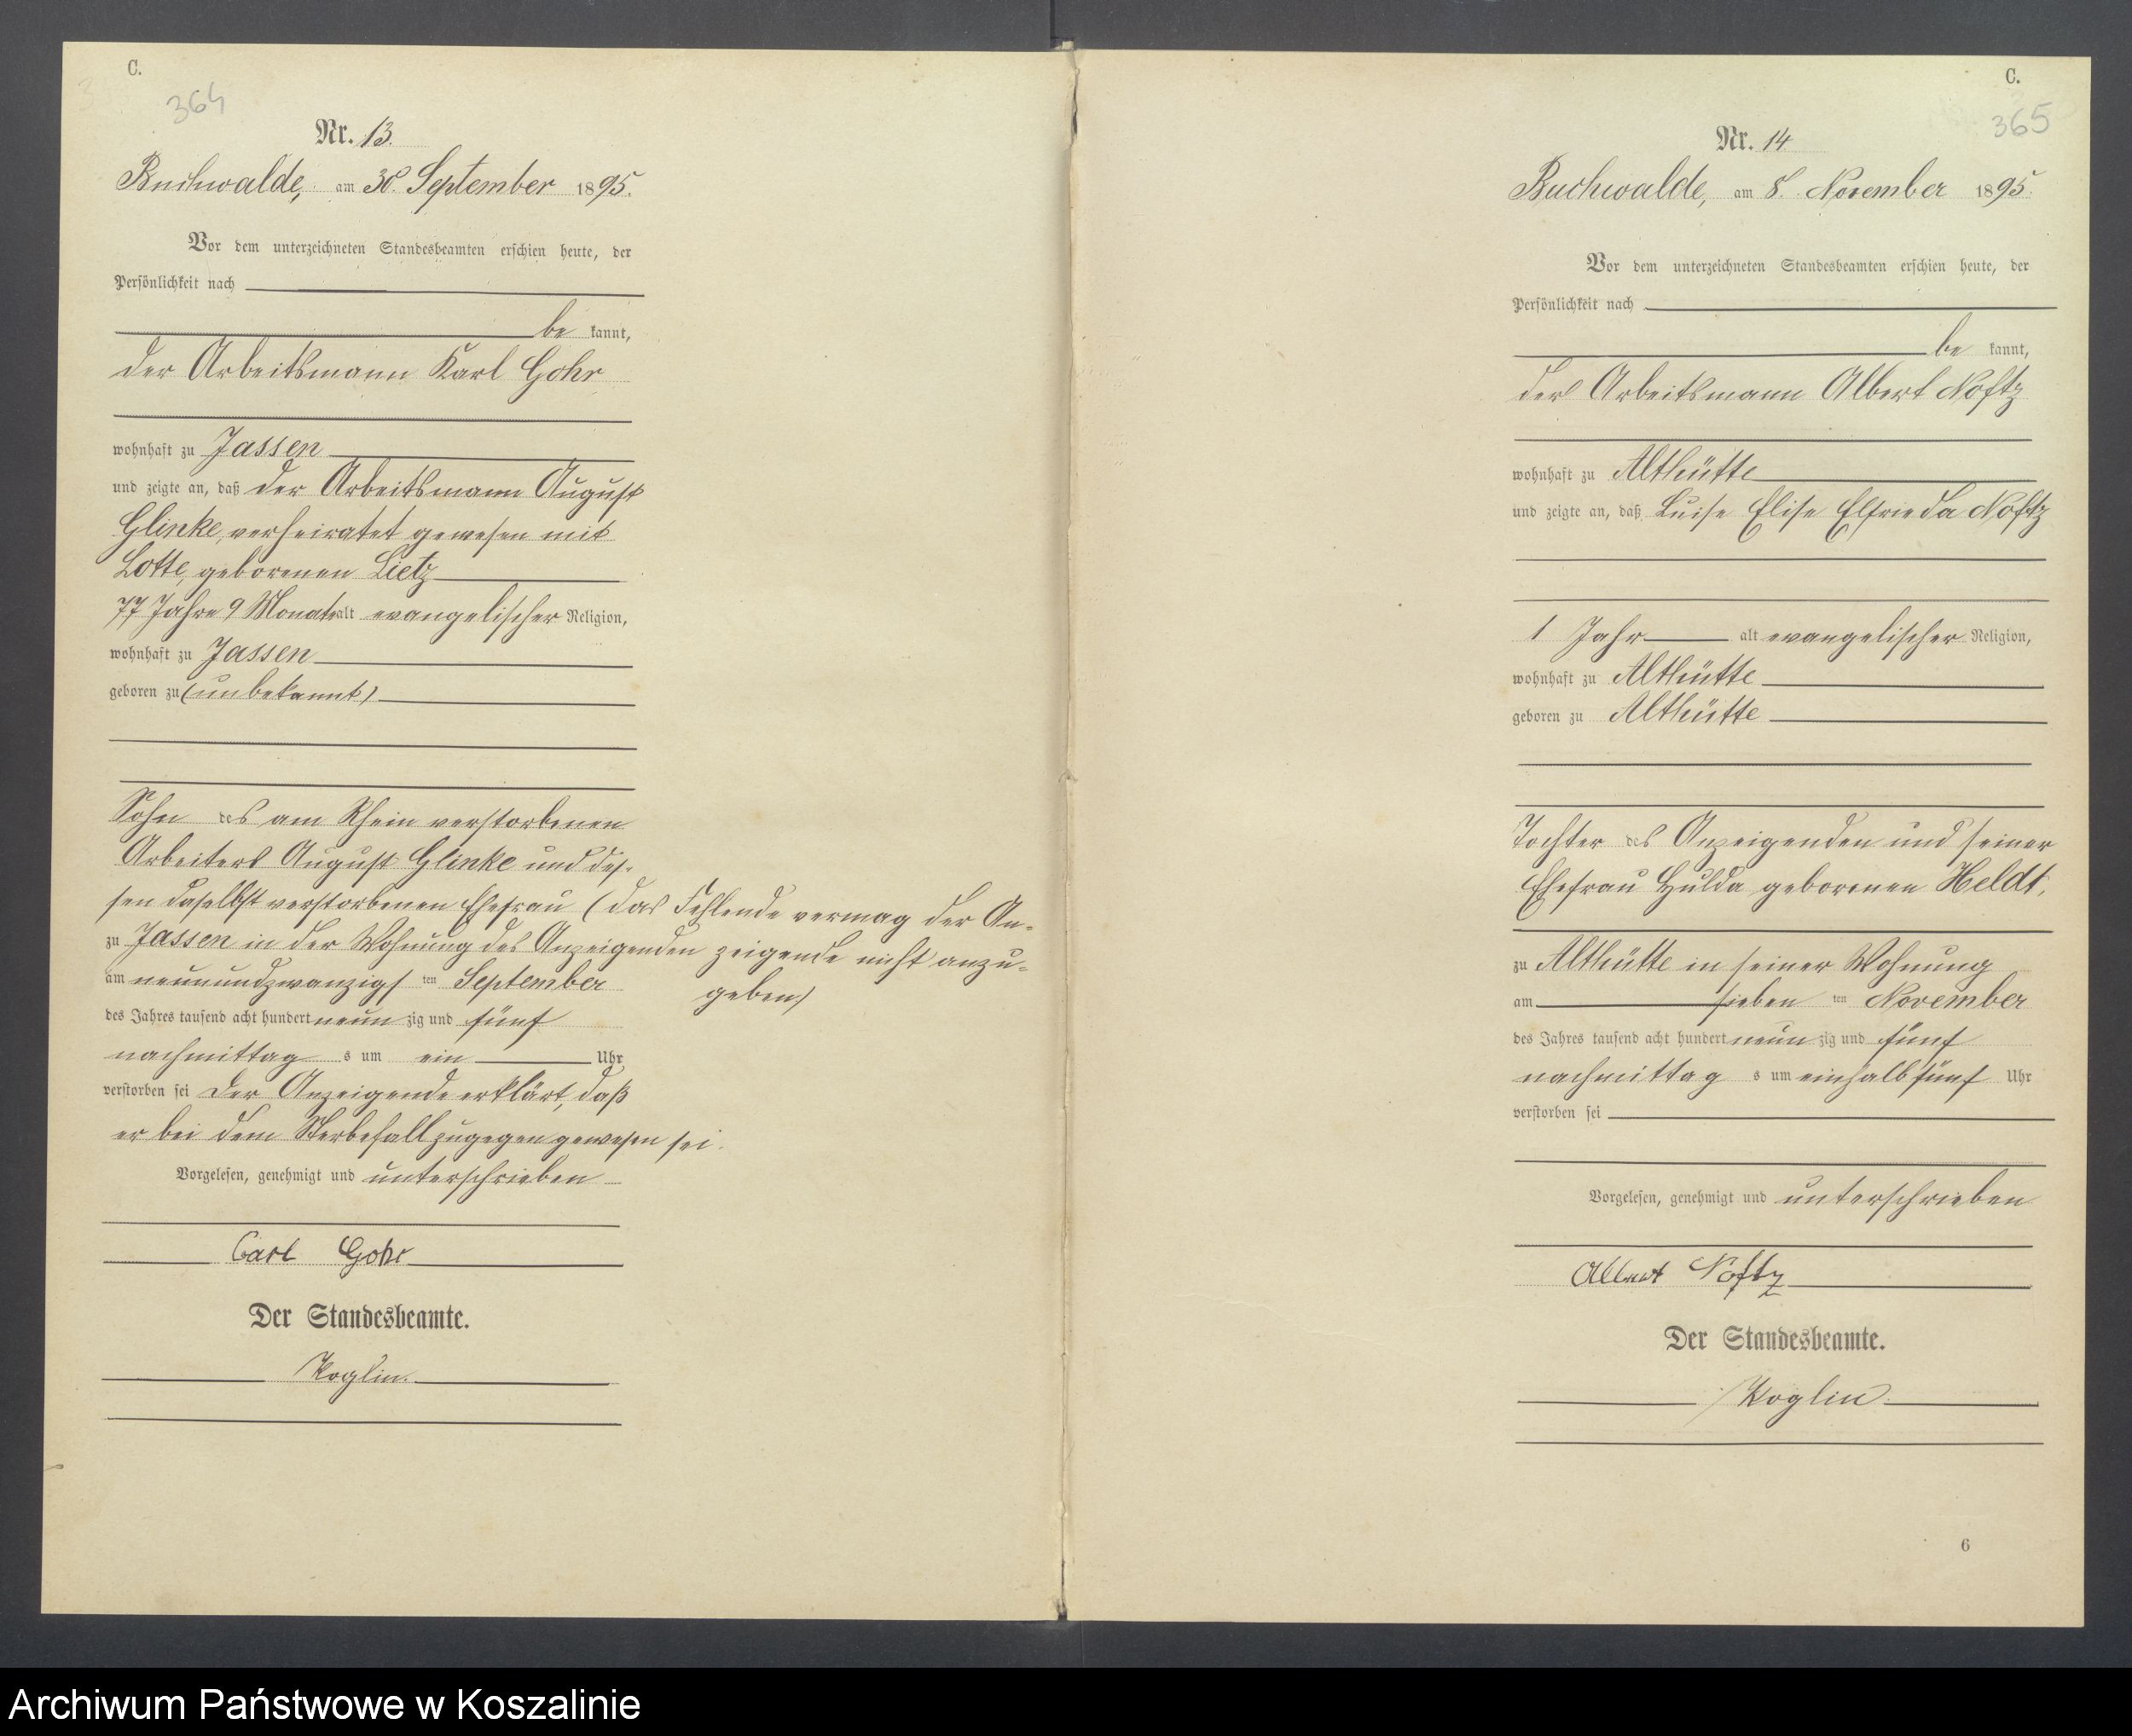 C.
364
Nr. 13.
Buchwalde, am 30. September 1895.
Vor dem unterzeichneten Standesbeamten erschien heute, der
Persönlichkeit nach
be kannt,
der Arbeitsmann Karl Gohr
wohnhaft zu Jassen
und zeigte an, daß der Arbeitsmann August
Glinke, verheiratet gewesen mit
Lotte, geborenen Lietz
77 Jahre 9 Monate alt evangelischer Religion,
wohnhaft zu Jassen
geboren zu (unbekannt)
Sohn des am Rhein verstorbenen
Arbeiters August Glinke und des-
sen daselbst verstorbenen Ehefrau (das Fehlende vermag der An-
zeigende nicht anzu-
geben)
zu Jassen in der Wohnung des Anzeigenden
am neunundzwanzigs ten September
des Jahres tausend acht hundert neun zig und fünf
nachmittag s um ein Uhr
verstorben sei der Anzeigende erklärt, daß
er bei dem Sterbefall zugegen gewesen sei.
Vorgelesen, genehmigt und unterschrieben
Carl Gohr
Der Standesbeamte.
Koglin.
C.
365
Nr. 14
Buchwalde, am 8. November 1895.
Vor dem unterzeichneten Standesbeamten erschien heute, der
Persönlichkeit nach
be kannt,
der Arbeitsmann Albert Noftz
wohnhaft zu Althütte
und zeigte an, daß Luise Elise Elfrieda Noftz
1 Jahr alt evangelischer Religion,
wohnhaft zu Althütte
geboren zu Althütte
Tochter des Anzeigenden und seiner
Ehefrau Hulda geborenen Heldt,
zu Althütte in seiner Wohnung
am sieben ten November
des Jahres tausend acht hundert neun zig und fünf
nachmittag s um einhalb fünf Uhr
verstorben sei
Vorgelesen, genehmigt und unterschrieben
Albert Noftz
Der Standesbeamte.
Koglin
6
Archiwum Państwowe w Koszalinie